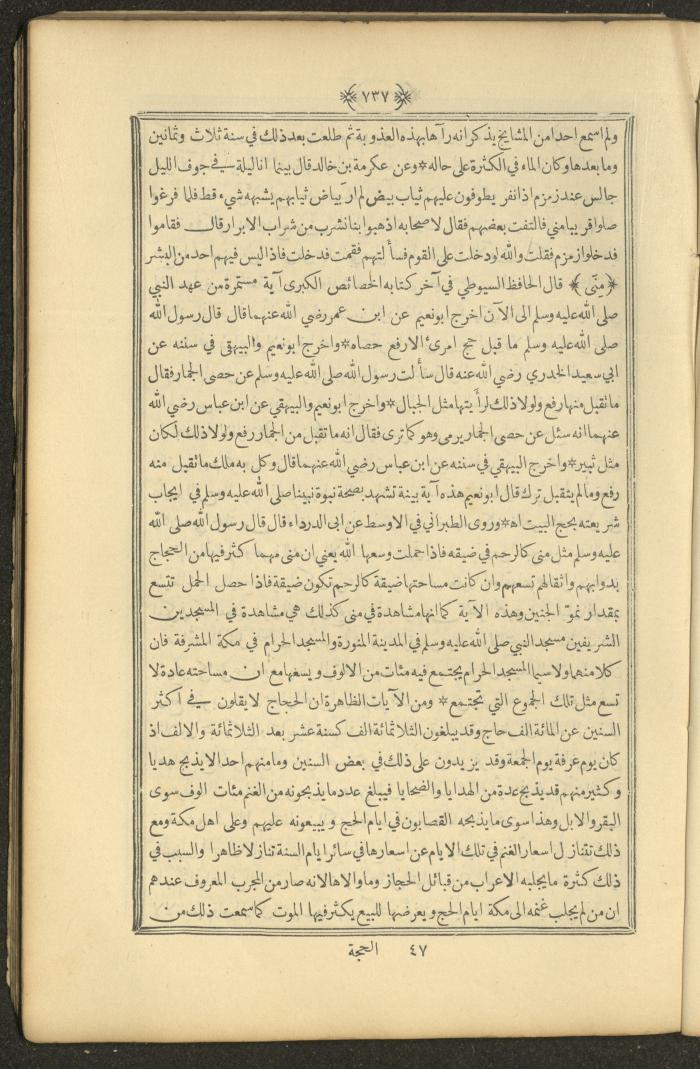 ﴿٧٣٧﴾
ولم اسمع احدا من المشايخ يذكر انه رآها بهذه العذوبة ثم طلعت بعد ذلك في سنة ثلاث وثمانين
وما بعدها وكان الماء في الكثرة على حاله * وعن عكرمة بن خالد قال بينما انا ليلة في جوف الليل
جالس عند زمزم اذا نفر يطوفون عليهم ثياب بيض لم ار بياض ثيابهم يشبهه شيء قط فلما فرغوا
صلوا قريبا مني فالتفت بعضهم فقال لاصحابه اذهبوا بنا نشرب من شراب الابرار قال فقاموا
فدخلوا زمزم فقلت والله لو دخلت على القوم فسألتهم فقمت فدخلت فاذا ليس فيهم احد من البشر
﴿مِنَى﴾ قال الحافظ السيوطي في آخر كتابه الخصائص الكبرى آية مستمرة من عهد النبي
صلى الله عليه وسلم الى الآن اخرج ابو نعيم عن ابن عمر رضي الله عنهما قال قال رسول الله
صلى الله عليه وسلم ما قبل حج امرئ الا رفع حصاه * واخرج ابو نعيم والبيهقي في سننه عن
ابي سعيد الخدري رضي الله عنه قال سألت رسول الله صلى الله عليه وسلم عن حصى الجمار فقال
ما تقبل منها رفع ولولا ذلك لرأيتها مثل الجبال * واخرج ابو نعيم والبيهقي عن ابن عباس رضي الله
عنهما انه سئل عن حصى الجمار يرمى وهو كما ترى فقال انه ما تقبل من الجمار رفع ولولا ذلك لكان
مثل ثبير * واخرج البيهقي في سننه عن ابن عباس رضي الله عنهما قال وكل به ملك ما تقبل منه
رفع وما لم يتقبل ترك قال ابو نعيم هذه آية بينة تشهد بصحة نبوة نبينا صلى الله عليه وسلم في ايجاب
شريعته بحج البيت اه * وروى الطبراني في الاوسط عن ابى الدرداء قال قال رسول الله صلى الله
عليه وسلم مثل منى كالرحم في ضيقه فاذا حملت وسعها الله يعني ان منى مهما كثر فيها من الحجاج
بدوابهم واثقالهم تسعهم وان كانت مساحتها ضيقة كالرحم تكون ضيقة فاذا حصل الحمل تتسع
بمقدار نموّ الجنين وهذه الآية كما انها مشاهدة في منى كذلك هي مشاهدة في المسجدين
الشريفين مسجد النبي صلى الله عليه وسلم في المدينة المنورة والمسجد الحرام في مكة المشرفة فان
كلا منهما ولا سيما المسجد الحرام يجتمع فيه مئات من الالوف ويسعها مع ان مساحته عادة لا
تسع مثل تلك الجموع التي تجتمع * ومن الآيات الظاهرة ان الحجاج لا يقلون في اكثر
السنين عن المائة الف حاج وقد يبلغون الثلاثمائة الف كسنة عشر بعد الثلاثمائة والالف اذ
كان يوم عرفة يوم الجمعة وقد يزيدون على ذلك في بعض السنين وما منهم احد الا يذبح هديا
وكثير منهم قد يذبح عدة من الهدايا والضحايا فيبلغ عدد ما يذبحونه من الغنم مئات الوف سوى
البقر والابل وهذا سوى ما يذبحه القصابون في ايام الحج ويبيعونه عليهم وعلى اهل مكة ومع
ذلك تتنازل اسعار الغنم في تلك الايام عن اسعارها في سائر ايام السنة تنازلا ظاهرا والسبب في
ذلك كثرة ما يجلبه الاعراب من قبائل الحجاز وما والاها لانه صار من المجرب المعروف عندهم
ان من لم يجلب غنمه الى مكة ايام الحج ويعرضها للبيع يكثر فيها الموت كما سمعت ذلك من
٤٧ الحجة